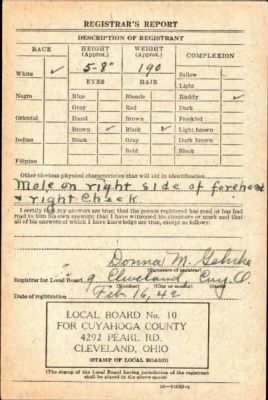 REGISTRAR'S REPORT
DESCRIPTION OF REGISTRANT
RACE HEIGHT (Approx.) WEIGHT (Approx.) COMPLEXION
White ✓ 5-8" 190 Sallow
EYES HAIR Light
Negro Blue Blonde Ruddy ✓
Gray Red Dark
Oriental Hazel Brown Freckled
Brown ✓ Black ✓ Light brown
Indian Black Gray Dark brown
Bald Black
Filipino
Other obvious physical characteristics that will aid in identification
Mole on right side of forehead
& right Cheek.
I certify that my answers are true; that the person registered has read or has had
read to him his own answers; that I have witnessed his signature or mark and that
all of his answers of which I have knowledge are true, except as follows:
Donna M.
(Signature of registrar)
Registrar for Local Board 9 Cleveland, Cuy. O.
(Number) (City or county) (State)
Date of registration Feb 16, 42
LOCAL BOARD No. 10
FOR CUYAHOGA COUNTY
4292 PEARL RD.
CLEVELAND, OHIO
(STAMP OF LOCAL BOARD)
(The stamp of the Local Board having jurisdiction of the registrant
shall be placed in the above space)